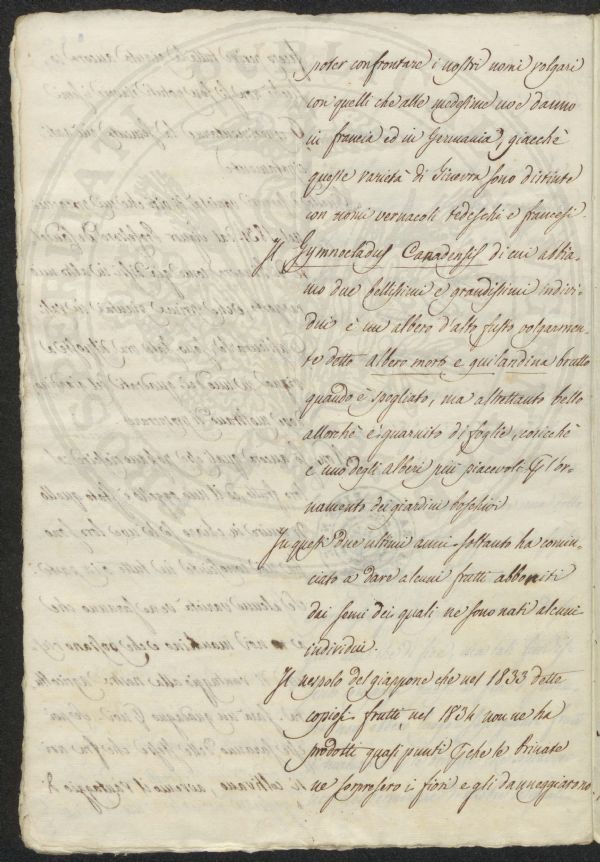 poter confrontare i nostri nomi volgari
con quelli che alle medesime uve danno
in francia ed in Germania, giacchè
queste varietà di Ginevra sono distinte
con nomi vernacoli tedeschi e francesi.
Il Gymnocladus Canadensis di cui abbia-
mo due bellissimi e grandissimi indivi-
dui è un albero d'alto fusto volgarmen-
te detto albero morto e guilandina brutto
quando è spogliato, ma altrettanto bello
allorchè è guarnito di foglie, cosichè
è uno degli alberi più piacevoli p l'or-
namento dei giardini boschivi
In questi due ultimi anni soltanto ha comin-
ciato a dare alcuni frutti abboniti
dai semi dei quali ne sono nati alcuni
individui.
Il nespolo del giappone che nel 1833 dette
copiosi frutti, nel 1834 non ne ha
prodotti quasi punti pche le brinate
ne sorpresero i fiori e gli danneggiarono